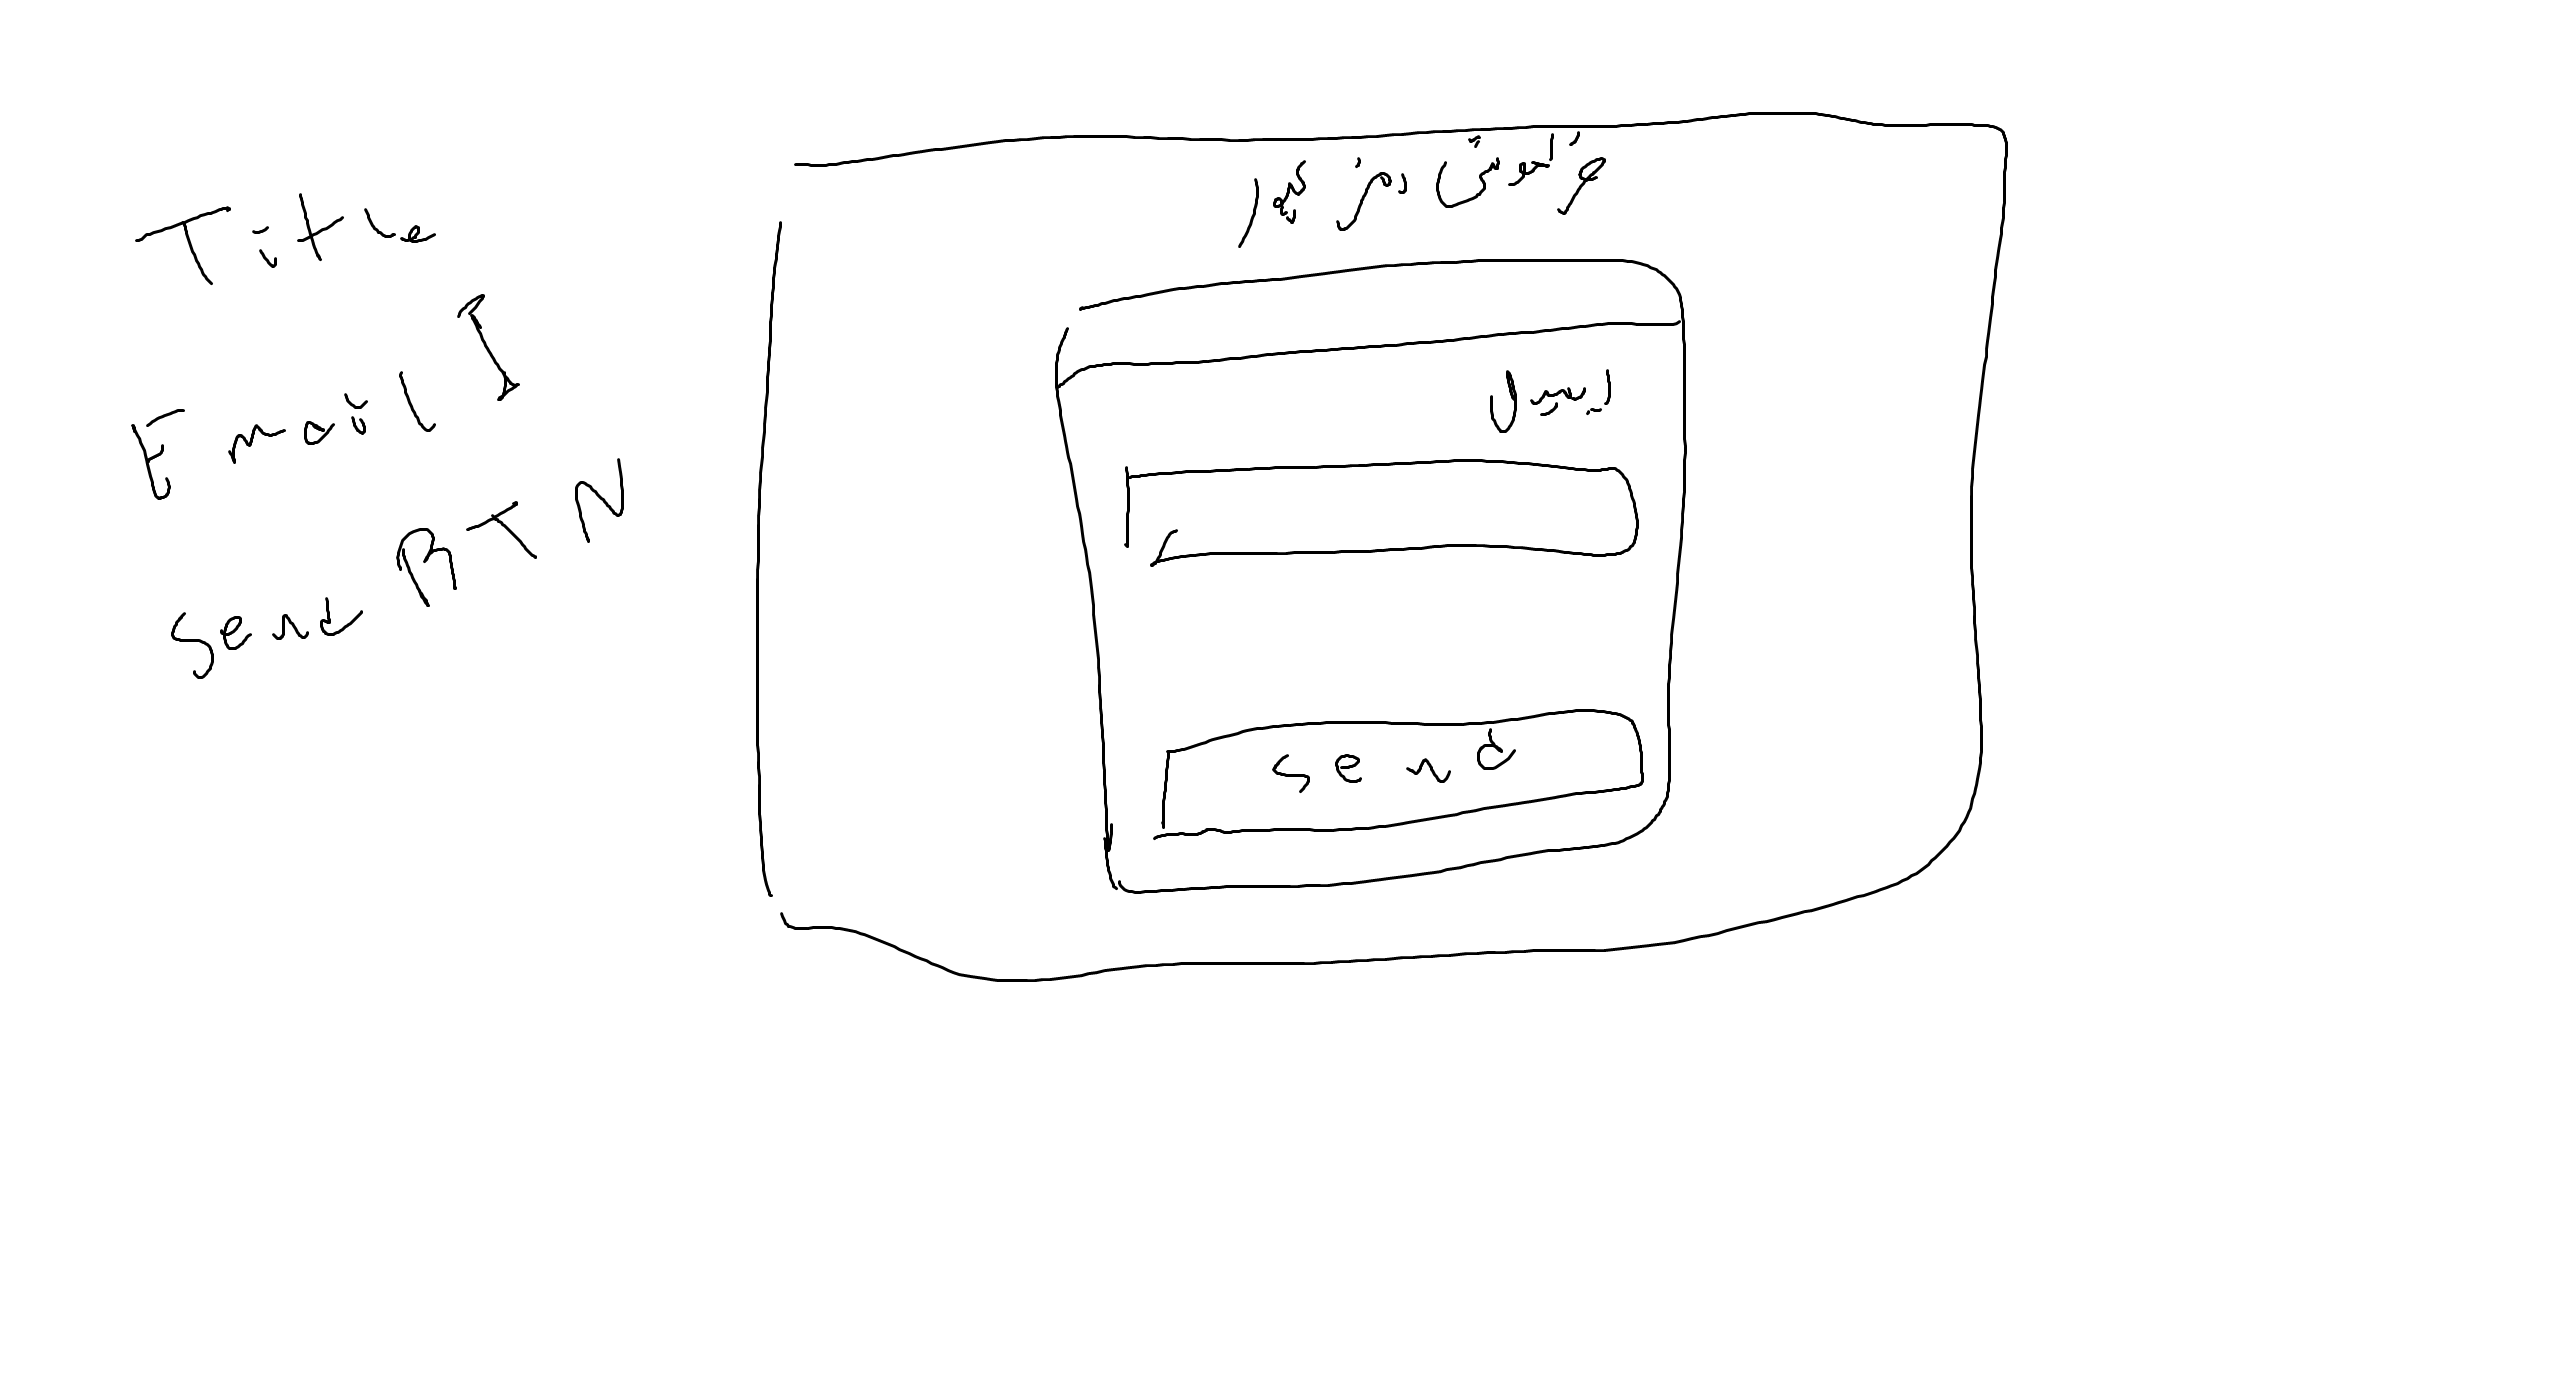 Title
Email I
Send BTN
فراموش رمز عبور
ایمیل
Send